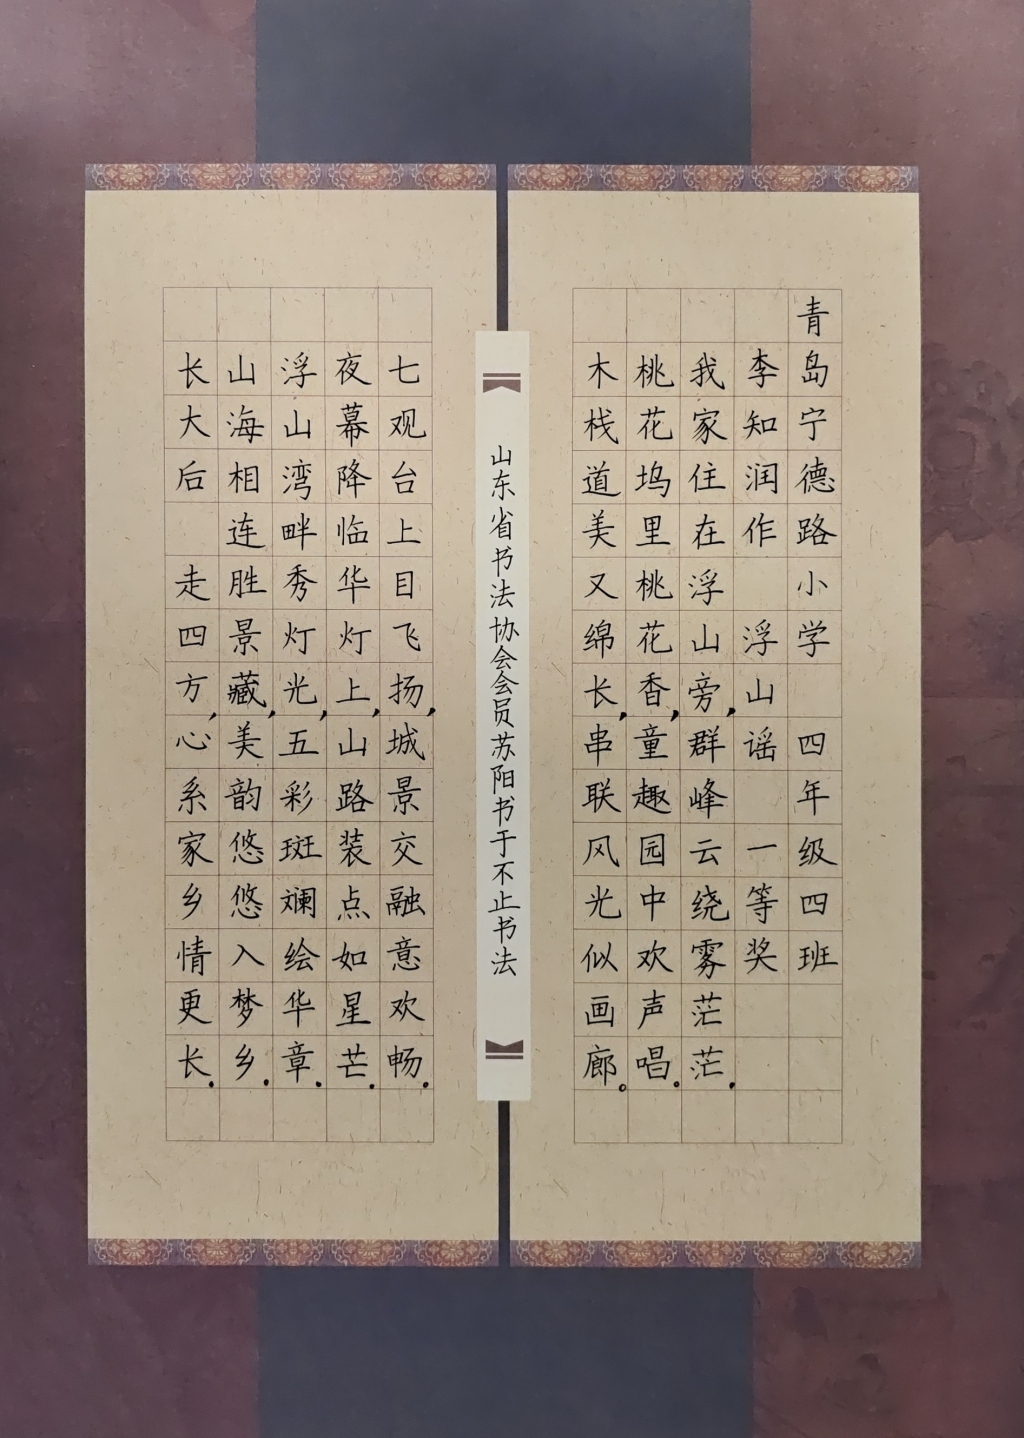 青岛宁德路小学 四年级四班
李知润作 浮山谣 一等奖
我家住在浮山旁,群峰云绕雾茫茫.
桃花坞里桃花香,童趣园中欢声唱。
木栈道美又绵长,串联风光似画廊。
山东省书法协会会员苏阳书于不止书法
七观台上目飞扬,城景交融意欢畅.
夜幕降临华灯上,山路装点如星芒.
浮山湾畔秀灯光,五彩斑斓绘华章.
山海相连胜景藏,美韵悠悠入梦乡.
长大后 走四方,心系家乡情更长.